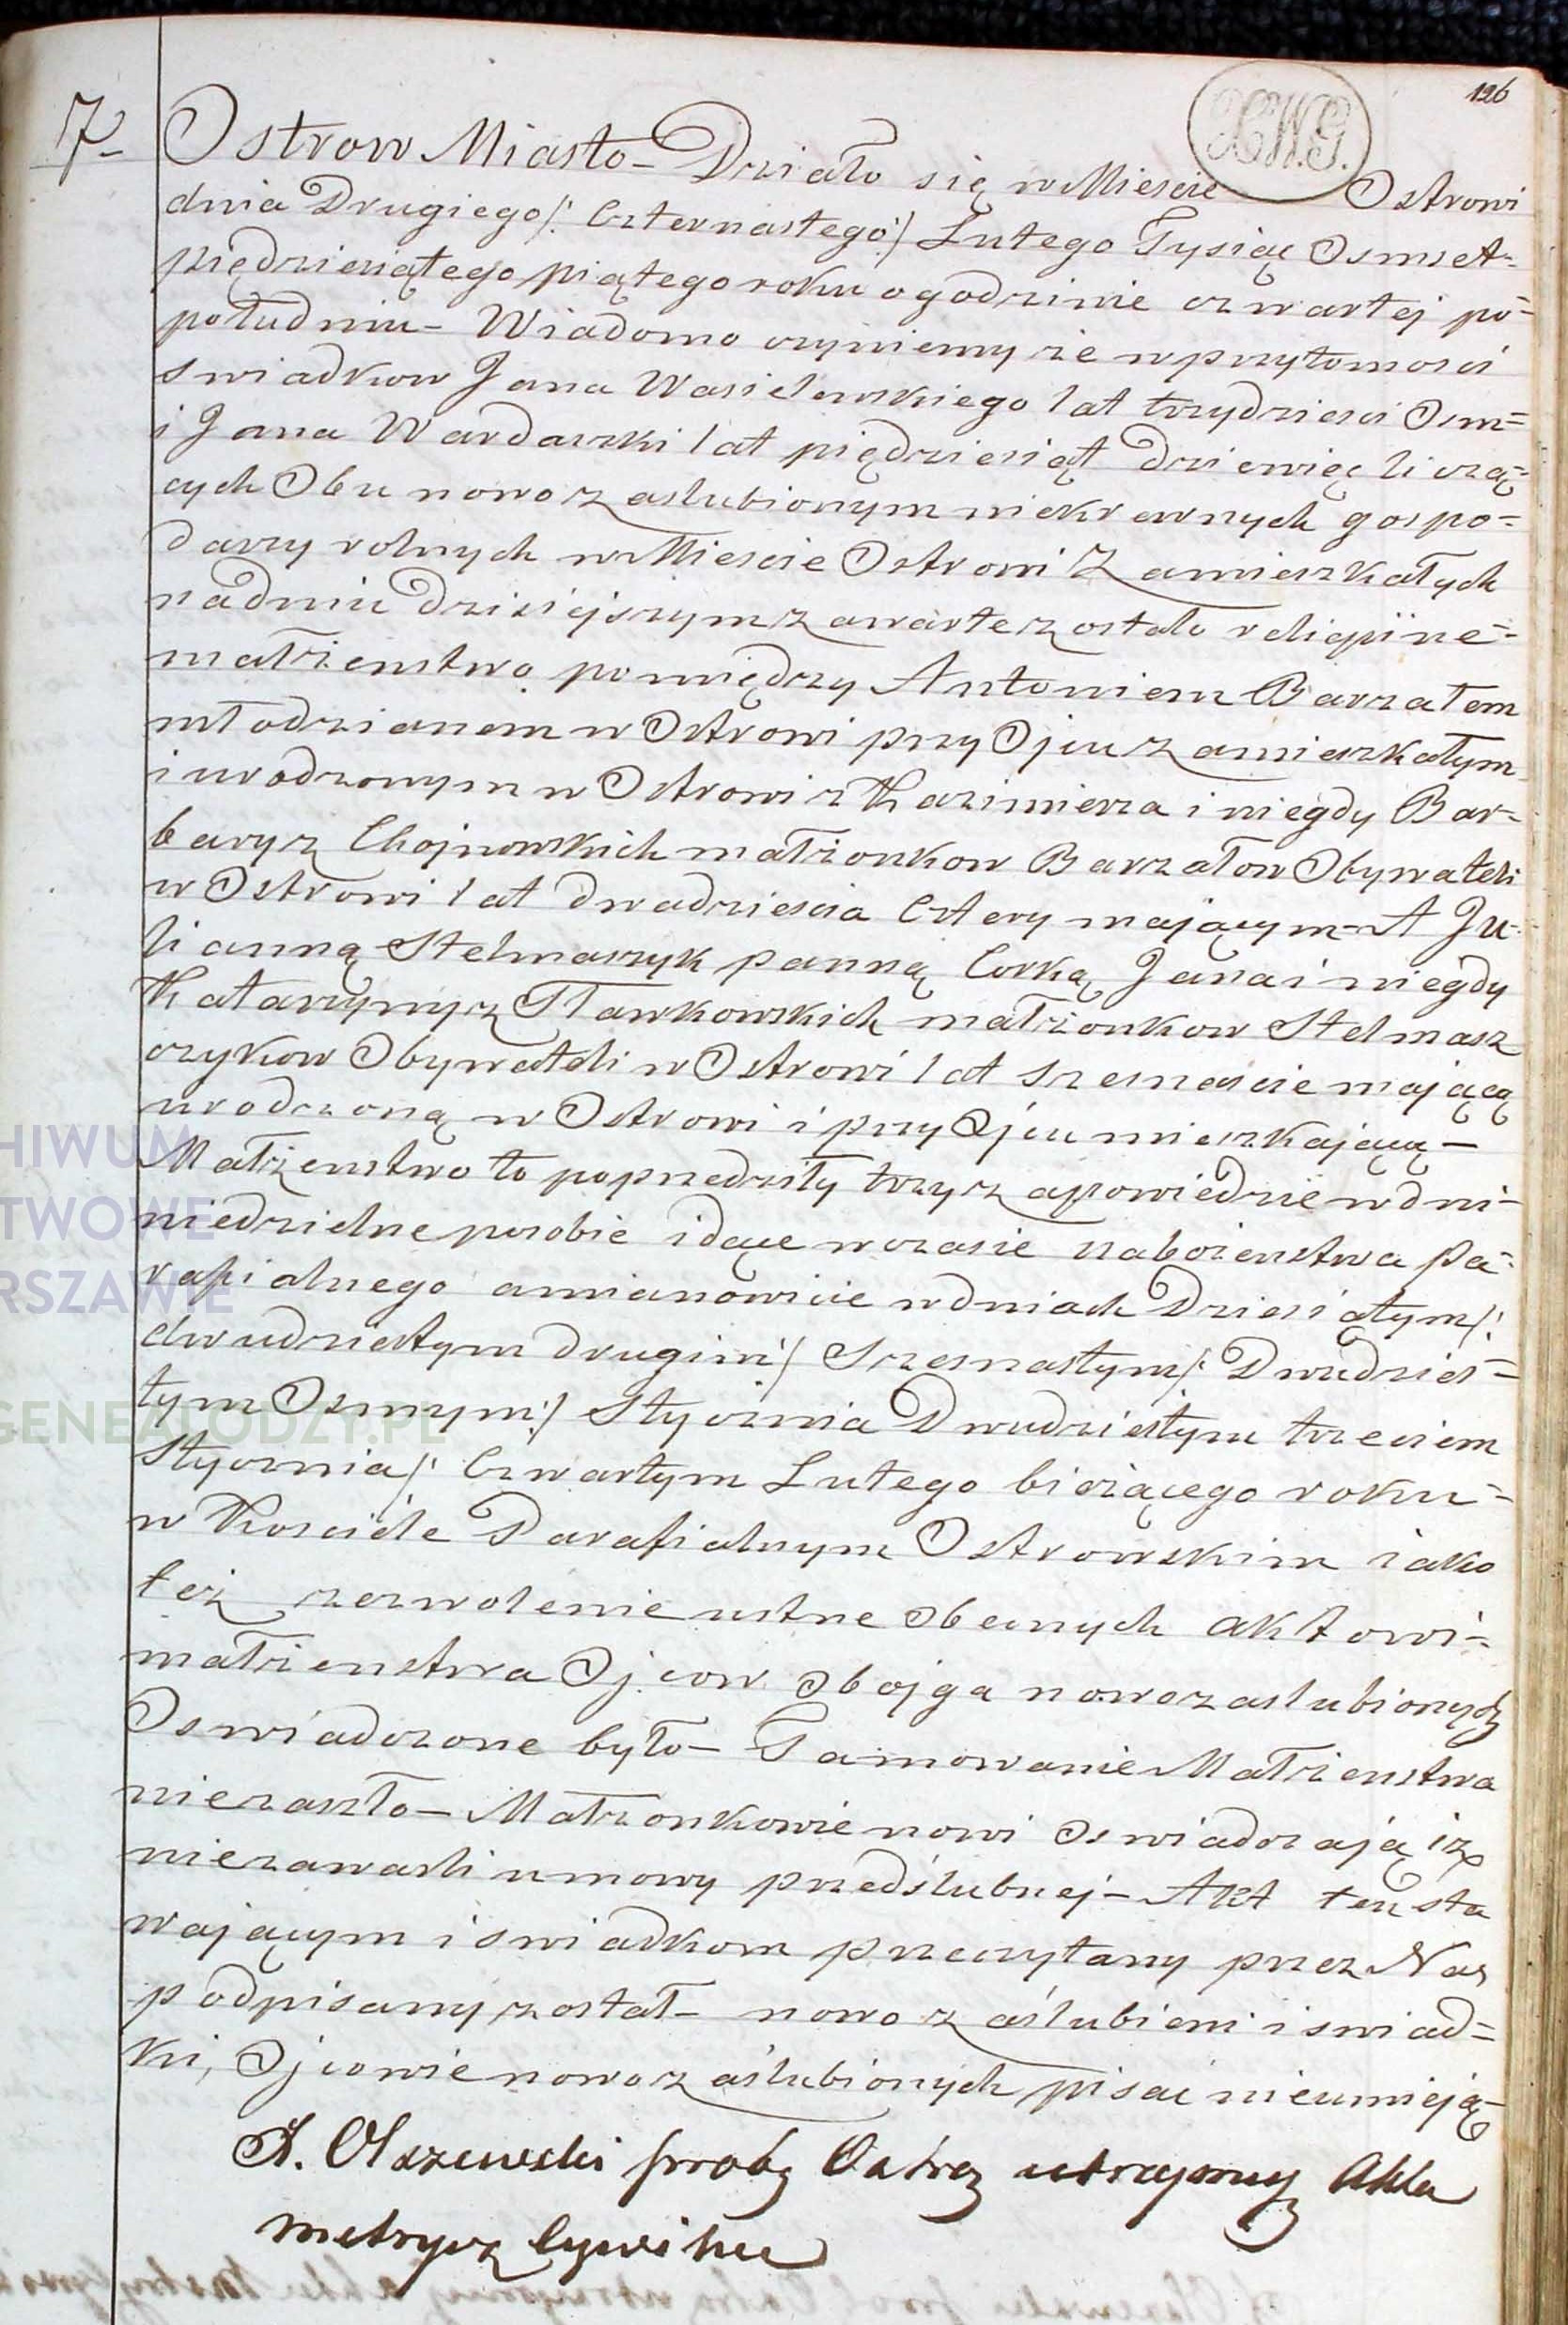 126
X.W.G.
7
Ostrow Miasto – Działo się w Miescie Ostrowi
dnia Drugiego/: Czternastego:/ Lutego Tysiąc Osmset=
piędziesiątego piątego roku o godzinie czwartej po=
południu – Wiadomo czyniemy ze w przytomosci
swiadkow Jana Wasielewskiego lat trzydziesci Osm=
i Jana Wardaszki lat piędziesiąt dziewięc liczą=
cych Obu nowozaslubionym niekrewnych gospo=
darzy rolnych w Miescie Ostrowi Zamieszkałych
na dniu dzisiejszym zawarte zostało religijne=
małżenstwo pomiędzy Antoniem Barzałem
młodzianem w Ostrowi przy Ojcu zamieszkałym
i urodzonym w Ostrowi z Kazimierza i niegdy Bar=
bary z Chojnowskich małżonkow Barzałow Obywateli
w Ostrowi lat dwadziescia Cztery mającym – A Ju=
lianną Stelmaszyk panną Corką Jana i niegdy
Katarzyny z Sławkowskich małżonkow Stelmasz
czykow Obywateli w Ostrowi lat szesnascie mającą
urodzoną w Ostrowi i przy Ojcu mieszkającą –
Małżenstwo to poprzedziły trzy zapowiedzie w dni=
niedzielne po sobie idące w czasie nabożenstwa pa=
rafialnego a mianowicie w dniach Dziesiątym/:
dwudziestym drugim:/ Szesnastym/: Dwudzies=
tym Osmym:/ Stycznia Dwudziestym trzeciem
Stycznia/: Czwartym Lutego bieżącego roku=
w Kosciele Parafialnym Ostrowskim iako
też zezwolenie ustne obecnych aktowi=
małżenstwa Ojcow obojga nowozaslubionych
Oswiadczone było – Tamowanie Małżenstwa
nie zaszło – Małżonkowie nowi oswiadczają iż
nie zawarli umowy przedślubnej – Akt ten sta
wającym i swiadkom przeczytany przez Nas
podpisany został – nowo zaślubieni i swiad=
ki, Ojcowie nowozaślubionych pisac nieumieją –
Olszewski prob. utrzymuj Akta
metrycz Cywilne
HIWUM
TWOWE
RSZAWIE
GENEALODZY.PL